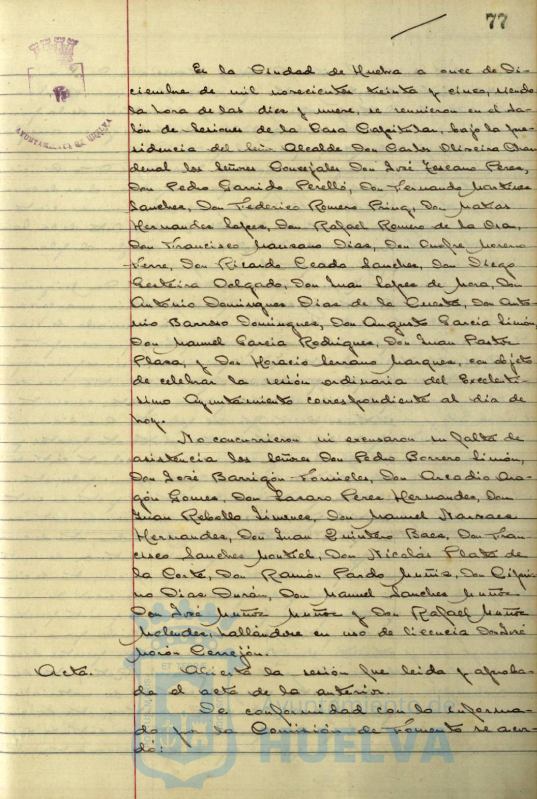 77
En la Ciudad de Huelva a once de Di-
ciembre de mil novecientos treinta y cinco, siendo
la hora de las diez y nueve, se reunieron en el Sa-
lón de Sesiones de la Casa Capitular, bajo la pre-
sidencia del Señor Alcalde Don Carlos Oliveira Chan
denal los Señores Concejales Don José Toscano Perez,
Don Pedro Garrido Perelló, Don Fernando Martinez
Sanchez, Don Federico Romero Don Matias
Hernandez Lopez, Don Rafael Romero de la Osa,
Don Francisco Manzano Dias, Don Onofre Moreno
Don Ricardo Sanchez, Don Diego
Delgado, Don Juan Lopez de Mora, Don
Antonio Dominguez Dias de la Don Anto-
nio Barroso Dominguez, Don Augusto Garcia Simón,
Don Manuel Garcia Rodriguez, Don Juan Pastor
Plaza, y Don Horacio Serrano Marquez, con objeto
de celebrar la sesión ordinaria del Excelentí-
simo Ayuntamiento correspondiente al dia de
hoy.
No concurrieron ni excusaron su falta de
asistencia los señores Don Pedro Borrero Limón,
Don José Barrigón Fornieles, Don Arcadio Ara-
gón Gomez, Don Lazaro Perez Hernandez, Don
Juan Rebollo Jimenez, Don Manuel Narvaez
Hernandez, Don Juan Quintero Baez, Don Fran-
cisco Sanchez Montiel, Don Nicolás Plata de
la Corte, Don Ramón Pardo Muñiz, Don Cipria-
no Dias Durán, Don Manuel Sanchez Muñoz
Don José Muñoz Muñoz y Don Rafael Muñiz
hallándose en uso de licencia Don José
Morón Cerrejón.
Acta. Abierta la sesión fue leida y aproba-
da el acta de la anterior.
De conformidad con lo informa-
do por la Comisión de Fomento se acor-
dó:
AYUNTAMIENTO DE HUELVA
Ayuntamiento de
HUELVA